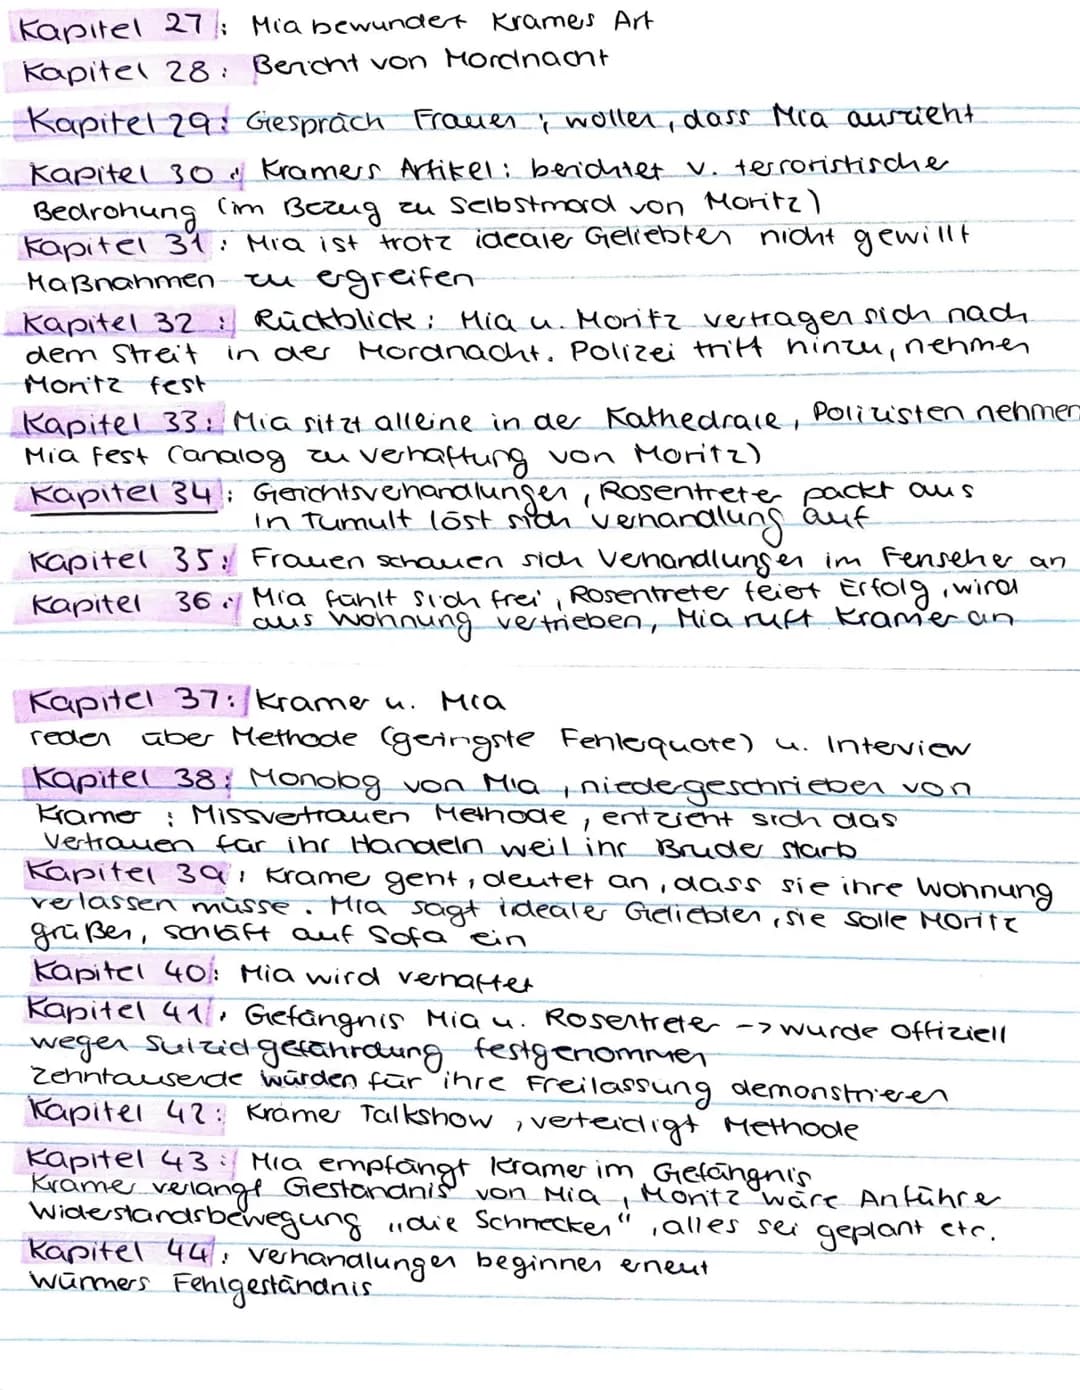 Kapitel 27: Mia bewundert Krames Art
Kapitel 28: Bericht von Mordnacht
Kapitel 29: Gespräch Frauen; wollen, dass Mia auszieht
Kapitel 30: Kramers Artikel: berichtet v. terroristische
Bedrohung (im Bezug zu Selbstmord von Moritz)
Kapitel 31: Mia ist trotz idealer Geliebten nicht gewillt
Maßnahmen zu ergreifen
Kapitel 32: Rückblick: Mia u. Moritz vertragen sich nach
dem Streit in der Mordnacht. Polizei tritt hinzu, nehmen
Moritz fest
Kapitel 33: Mia sitzt alleine in der Kathedrale, Polizisten nehmen
Mia fest (analog zu Verhaftung von Moritz)
Kapitel 34: Gerichtsverhandlungen, Rosentreter packt aus
In Tumult löst sich Verhandlung auf
Kapitel 35: Frauen schauen sich Verhandlungen im Fernseher an
Kapitel 36: Mia fühlt sich frei, Rosentreter feiert Erfolg, wird
aus Wohnung vertrieben, Mia ruft Kramer an
Kapitel 37: Kramer u. Mia
reden über Methode (geringste Fehlerquote) u. Interview
Kapitel 38: Monolog von Mia, niedergeschrieben von
Kramer: Missvertrauen Methode, entzieht sich das
Vertrauen für ihr Handeln weil ihr Bruder starb
Kapitel 39: Kramer geht, deutet an, dass sie ihre Wohnung
verlassen müsse. Mia sagt idealer Geliebten, sie solle Moritz
grüßen, schläft auf Sofa ein
Kapitel 40: Mia wird verhaftet
Kapitel 41: Gefängnis Mia u. Rosentreter -> wurde offiziell
wegen Suizidgefährdung festgenommen
Zehntausende würden für ihre Freilassung demonstrieren
Kapitel 42: Kramer Talkshow, verteidigt Methode
Kapitel 43: Mia empfängt Kramer im Gefängnis
Kramer verlangt Geständnis von Mia, Moritz wäre Anführer
Widerstandsbewegung „die Schnecken“, alles sei geplant etc.
Kapitel 44: Verhandlungen beginnen erneut
Würmers Fehlgeständnis